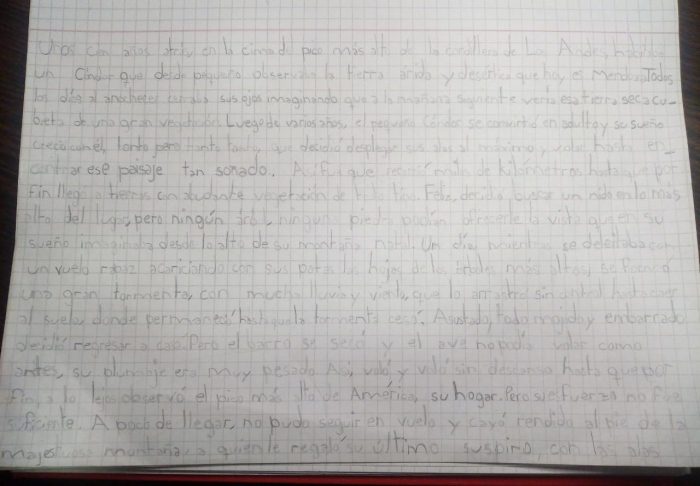 Unos cien años atrás, en la cima de pico más alto de la cordillera de Los Andes, habitaba
un Cóndor que desde pequeño observaba la tierra árida y desértica que hoy es Mendoza. Todos
los días al anochecer cerraba sus ojos imaginando que a la mañana siguiente vería esa tierra seca cu-
bierta de una gran vegetación. Luego de varios años, el pequeño Cóndor se convirtió en adulto y su sueño
creció con él, tanto pero tanto tanto, que decidió desplegar sus alas al máximo y volar hasta en_
contrar ese paisaje tan soñado. Así fue que recorrió miles de kilómetros hasta que por
fin llegó a tierras con abudante vegetación de todo tipo. Feliz, decidió buscar un nido en lo más
alto del lugar, pero ningún árbol, ninguna piedra podían ofrecerle la vista que en su
sueño imaginaba desde lo alto de su montaña natal. Un día, mientras se deleitaba con
un vuelo rapaz acariciando con sus patas las hojas de los árboles más altos, se formó
una gran tormenta, con mucha lluvia y viento, que lo arrastró sin control hasta caer
al suelo, donde permaneció hasta que la tormenta cecó. Asustado, todo mojado y embarrado
decidió regresar a casa. Pero el barro se secó y el ave no podía volar como
antes, su plumaje era muy pesado. Así, voló y voló sin descanso hasta que por
fin, a lo lejos observó el pico más alto de América, su hogar. Pero su esfuerzo no fue
suficiente. A poco de llegar, no pudo seguir en vuelo y cayó rendido al pie de la
majestuosa montaña, a quien le regaló su último suspiro, con las alas